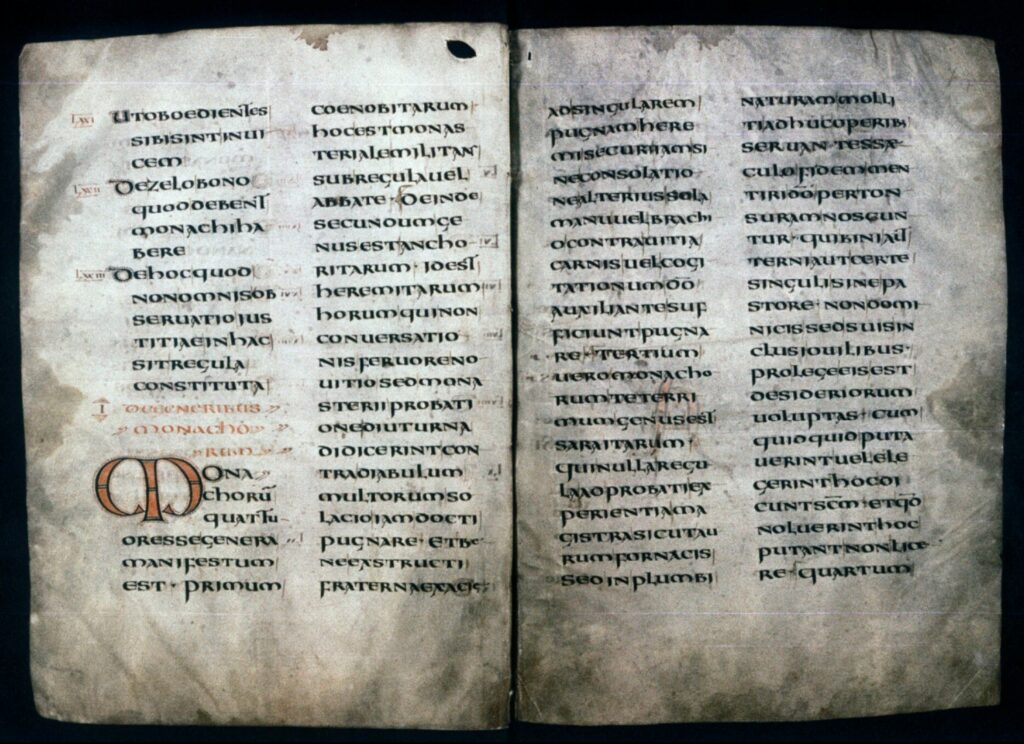 LXXI UTOBOEDIENTES
SIBISINTINUI
CEM
LXXII DEZELOBONO
QUODDEBENT
MONACHIHA
BERE
LXXIII DEHOCQUOD
NONOMNISOB
SERUATIOIUS
TITIAEINHAC
SITREGULA
CONSTITUTA
I DEGENERIBUS
MONACHŌ
RUM
MONA
CHORŪ
QUATTU
ORESSEGENERA
MANIFESTUM
EST · PRIMUM
COENOBITARUM
HOCESTMONAS
TERIALEMILITANT
SUBREGULAUEL
ABBATE · DEINDE
SECUNDUMGE
NUSESTANCHO
RITARUM · IDEST
HEREMITARUM
HORUMQUINON
CONUERSATIO
NISFERUORENO
UITIOSEDMONA
STERIIPROBATI
ONEDIUTURNA
DIDICERINTCON
TRADIABULUM
MULTORUMSO
LACIOIAMDOCTI
PUGNARE · ETBE
NEEXSTRUCTI
FRATERNAEXACIE
ADSINGULAREM
PUGNAMHERE
MISECURIIAMSI
NECONSOLATIO
NEALTERIUSSOLA
MANUUELBRACHI
OCONTRAUITIA
CARNISUELCOGI
TATIONUMDŌ
AUXILIANTESUF
FICIUNTPUGNA
RE · TERTIUM
UEROMONACHO
RUMTETERRI
MUMGENUSEST
SARAITARUM ·
QUINULLAREGU
LAADPROBATIEX
PERIENTIAMA
GISTRASICUTAU
RUMFORNACIS
SEDINPLUMBI
NATURAMMOLLI
TIADHUCOPERIB;
SERUANTESSAE
CULOFIDEMMEN
TIRIDŌPERTON
SURAMNOSCUN
TUR · QUIBINIAUT
TERNIAUTCERTE
SINGULISINEPA
STORE · NONDOMI
NICISSEDSUISIN
CLUSIOUILIBUS ·
PROLEGEEISEST
DESIDERIORUM
UOLUPTAS · CUM
QUIDQUIDPUTA
UERINTUELELE
GERINTHOCDI
CUNTSCM̄ · ETQD̄
NOLUERINTHOC
PUTANTNONLICE
RE · QUARTUM